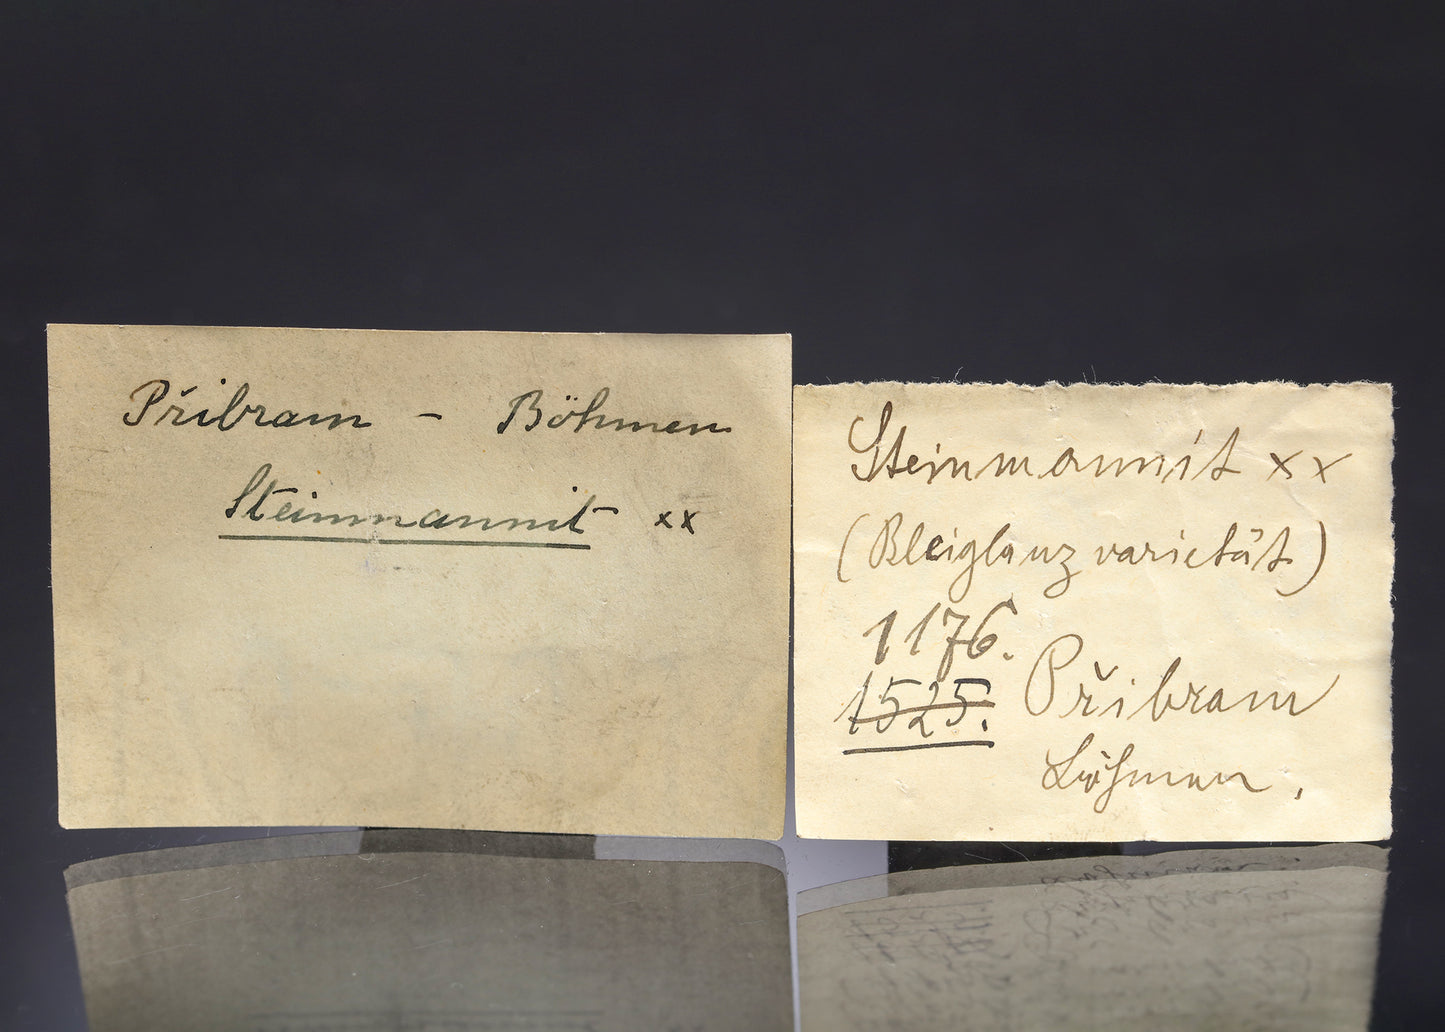 Přibram – Böhmen
Steinmannit xx
Steinmannit xx
(Bleiglanz varietät)
1176.
1525.
Přibram
Böhmen.